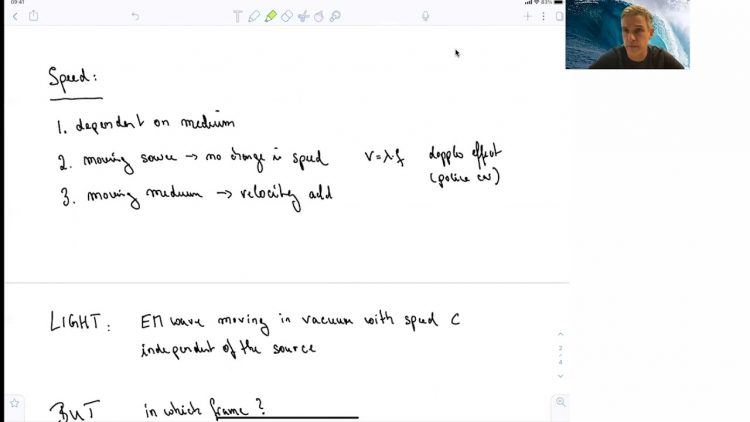 09:41
83%
Speed:
1. dependent on medium
2. moving source → no change in speed v=λf doppler effect
(police car)
3. moving medium → velocity add
LIGHT: EM wave moving in vacuum with speed c
independent of the source
2
4
BUT in which frame?